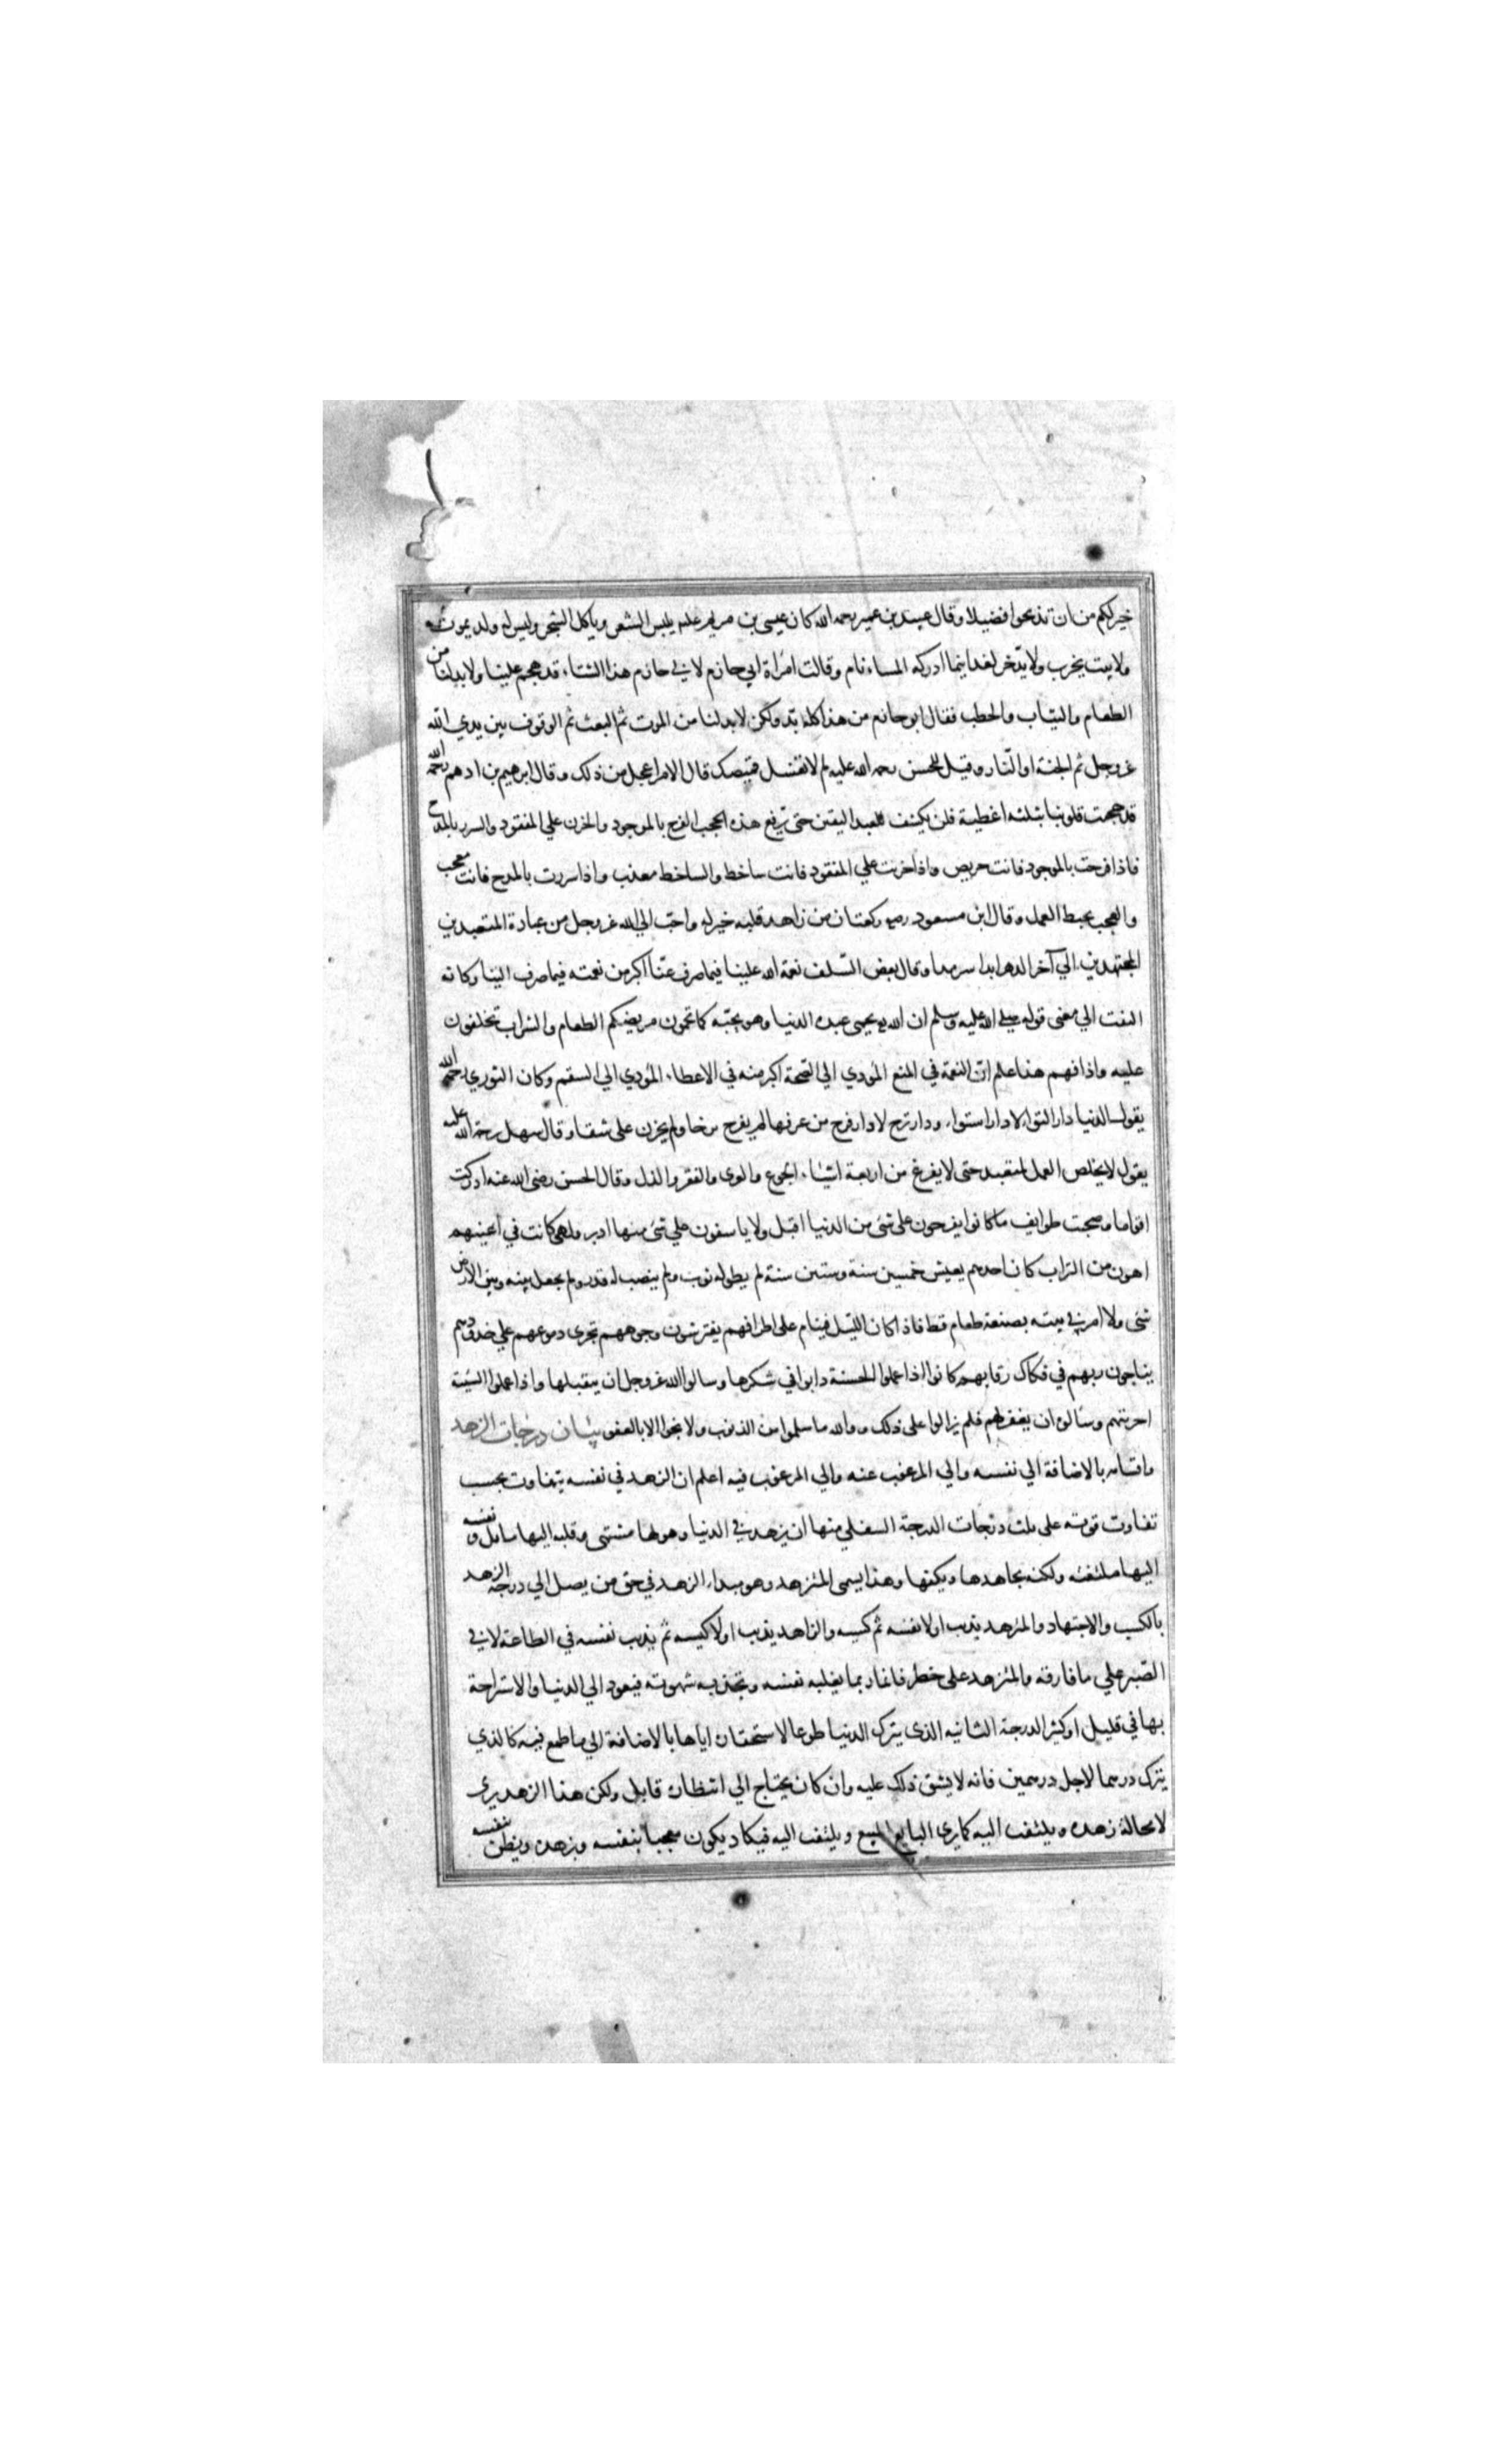 خير لكم من ان تذبحوا فضيلا وقال عبيد بن عمير رحمه الله كان عيسى بن مريم عليه يلبس الشعر وياكل الشجر وليس له ولد يموت
ولا بيت يخرب ولا يدّخر لغد اينما ادركه المساء نام وقالت امرأة ابي حازم لابي حازم هذا الشتاء قد هجم علينا ولا بد لنا من
الطعام والثياب والحطب فقال ابو حازم من هذا كله بدّ ولكن لا بد لنا من الموت ثم البعث ثم الوقوف بين يدي الله
عز وجل ثم الجنة او النّار وقيل للحسن رحمه الله عليه لم لا تغسل قميصك قال الامر اعجل من ذلك وقال ابرهيم بن ادهم رحمه الله
قد حجبت قلوبنا بثلثه اغطية فلن يكشف للعبد اليقين حتى ترفع هذه الحجب الفرح بالموجود والحزن علي المفقود والسرور بالمدح
فاذا فرحت بالموجود فانت حريص واذا حزنت علي المفقود فانت ساخط والساخط معذب واذا سررت بالمدح فانت معجب
والعجب يحبط العمل وقال ابن مسعود رضه ركعتان من زاهد قلبه خير له واحبّ الي الله عز وجل من عبادة المتعبدين
المجتهدين الي آخر الدهر ابدا سرمدا وقال بعض السّلف نعمة الله علينا فيما صرف عنّا اكبر من نعمته فيما صرف الينا وكانه
التفت الي معنى قوله صلى الله عليه وسلم ان الله يحمى عبده الدنيا وهو يحبّه كما تحمون مريضكم الطعام والشراب تخافون
عليه واذا فهم هذا علم انّ النعمة في المنع المؤدي الي الصحة اكبر منه في الاعطاء المؤدي الي السقم وكان الثوري رحمه الله
يقول الدنيا دار التواء لا دار استواء ودار ترح لا دار فرح من عرفها لم يفرح برخا ولم يحزن على شقاء وقال سهل رحمة الله عليه
يقول لا يخلص العمل لمتعبد حتى لا يفرغ من اربعة اشياء الجوع والعرى والفقر والذل وقال الحسن رضى الله عنه ادركت
اقواما وصحبت طوايف ما كانوا يفرحون على شئ من الدنيا اقبل ولا ياسفون علي شئ منها ادبر ولهى كانت في اعينهم
اهون من التراب كان احدهم يعيش خمسين سنة وستين سنة لم يطو له ثوب ولم ينصب له قدر ولم يجعل بينه وبين الارض
شئ ولا امر في بيته بصنعة طعام قط فاذا كان اللّيل فقيام على اطرافهم يفترشون وجوههم تجرى دموعهم علي خدودهم
يناجون ربهم في فكاك رقابهم كانوا اذا عملوا الحسنة دابوا في شكرها وسالوا الله عز وجل ان يتقبلها واذا عملوا السّيئة
احزنتهم وسألوه ان يغفرها لهم فلم يزالوا على ذلك ووالله ما سلموا من الذنوب ولا نجوا الا بالعفو بيان درجات الزهد
واقسامه بالاضافة الي نفسه والي المرغوب عنه والي المرغوب فيه اعلم ان الزهد في نفسه يتفاوت بحسب
تفاوت قوته على ثلث درجات الدرجة السفلي منها ان يزهد في الدنيا وهو لها مشتهى وقلبه اليها مايل ونفسه
اليها ملتفته ولكنه يجاهدها ويكفها وهذا يسمى المتزهد وهو مبداء الزهد في حق من يصل الي درجة الزهد
بالكسب والاجتهاد والمتزهد يذيب اولا نفسه ثم كيسه والزاهد يذيب اولا كيسه ثم يذيب نفسه في الطاعة لا في
الصّبر علي ما فارقه والمتزهد على خطر فانه ربما يغلبه نفسه وتجذبه شهوته فيعود الي الدنيا والاستراحة
بها في قليل او كثير الدرجة الثانيه الذى يترك الدنيا طوعا لاستحقاره اياها بالاضافة الي ما طمع فيه كالذي
يترك درهما لاجل درهمين فانه لا يشق ذلك عليه وان كان يحتاج الي انتظار قابل ولكن هذا الزهد يرى
لا محالة زهده ويلتفت اليه كما يرى البايع المبيع ويلتفت اليه فيكاد يكون معجبا بنفسه وبزهده ويظن بنفسه